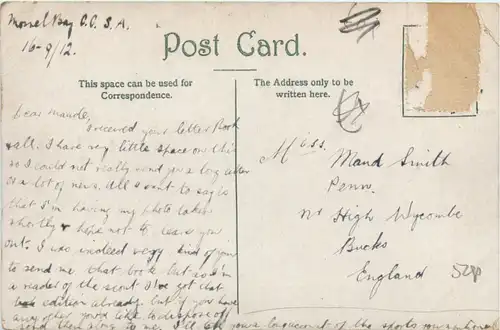 Mossel Bay C.C. S.A.
16-9/12.
Post Card.
This space can be used for
Correspondence.
The Address only to be
written here.
Dear Maude,
I received your letter Book
& all. I have very little space on this
so I could not really send you a long letter
or a lot of news. All I want to say is
that I'm having my photo taken
shortly & hope not to leave you
out. I was indeed very kind of you
to send me that book but as I'm
a reader of the scout I've got that
edition already. but if you have
any other you'd like to dispose off
send them along to me. I'll let you a long account of the sports
Miss.
Maud Smith
Penn.
Nr High Wycombe
Bucks
England
50p